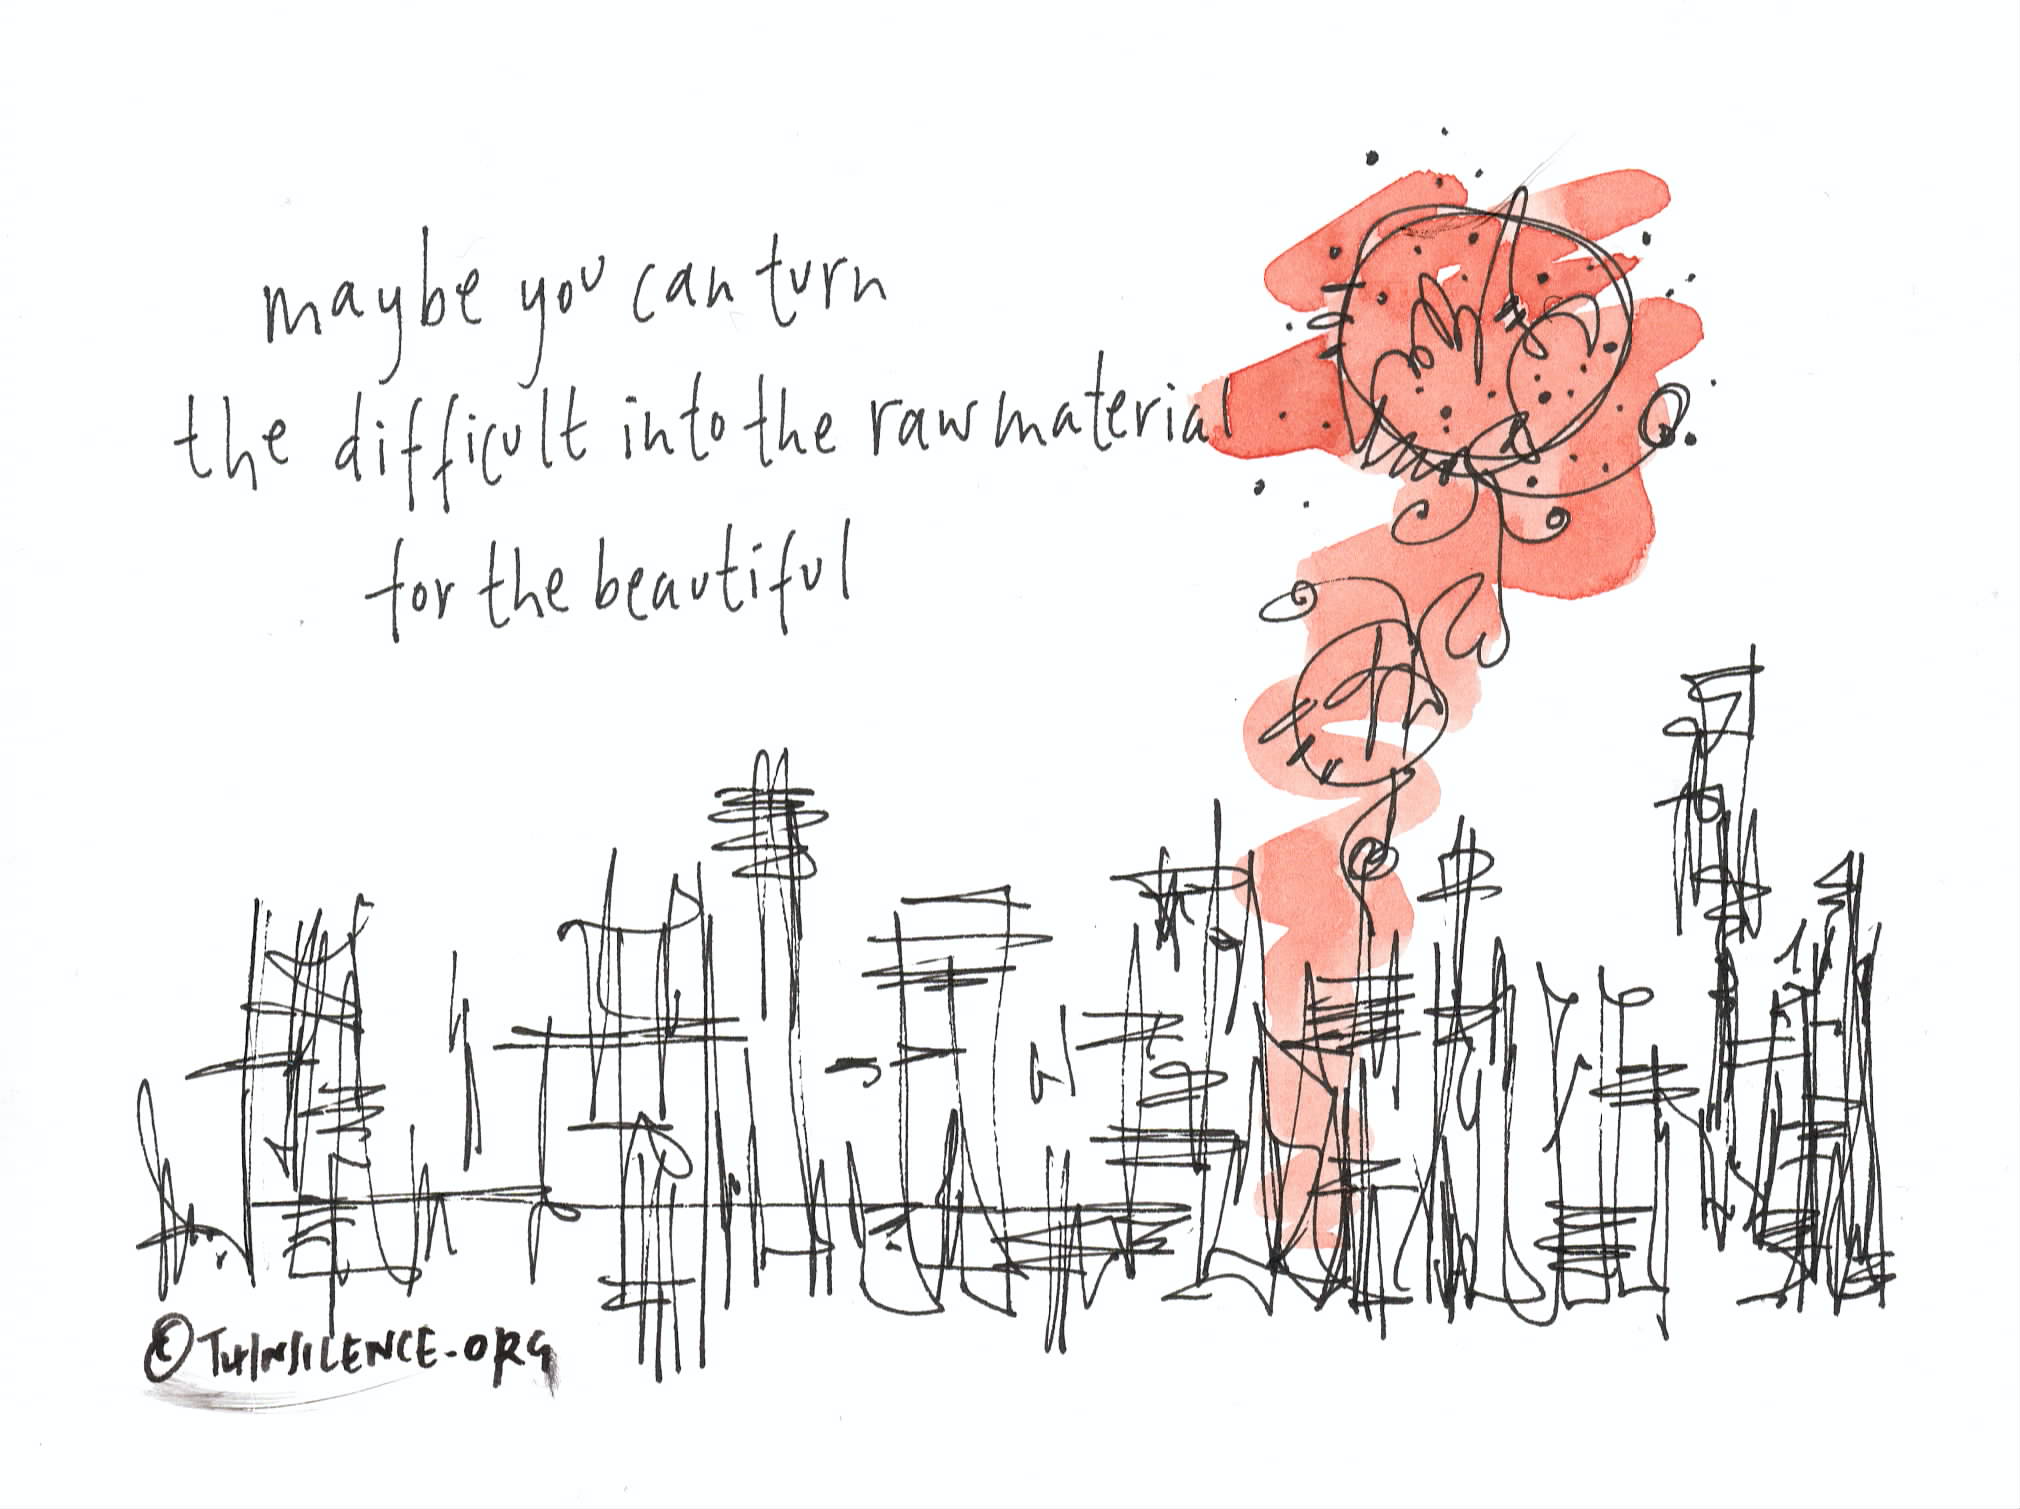 maybe you can turn
the difficult into the raw material
for the beautiful
© THINSILENCE.ORG